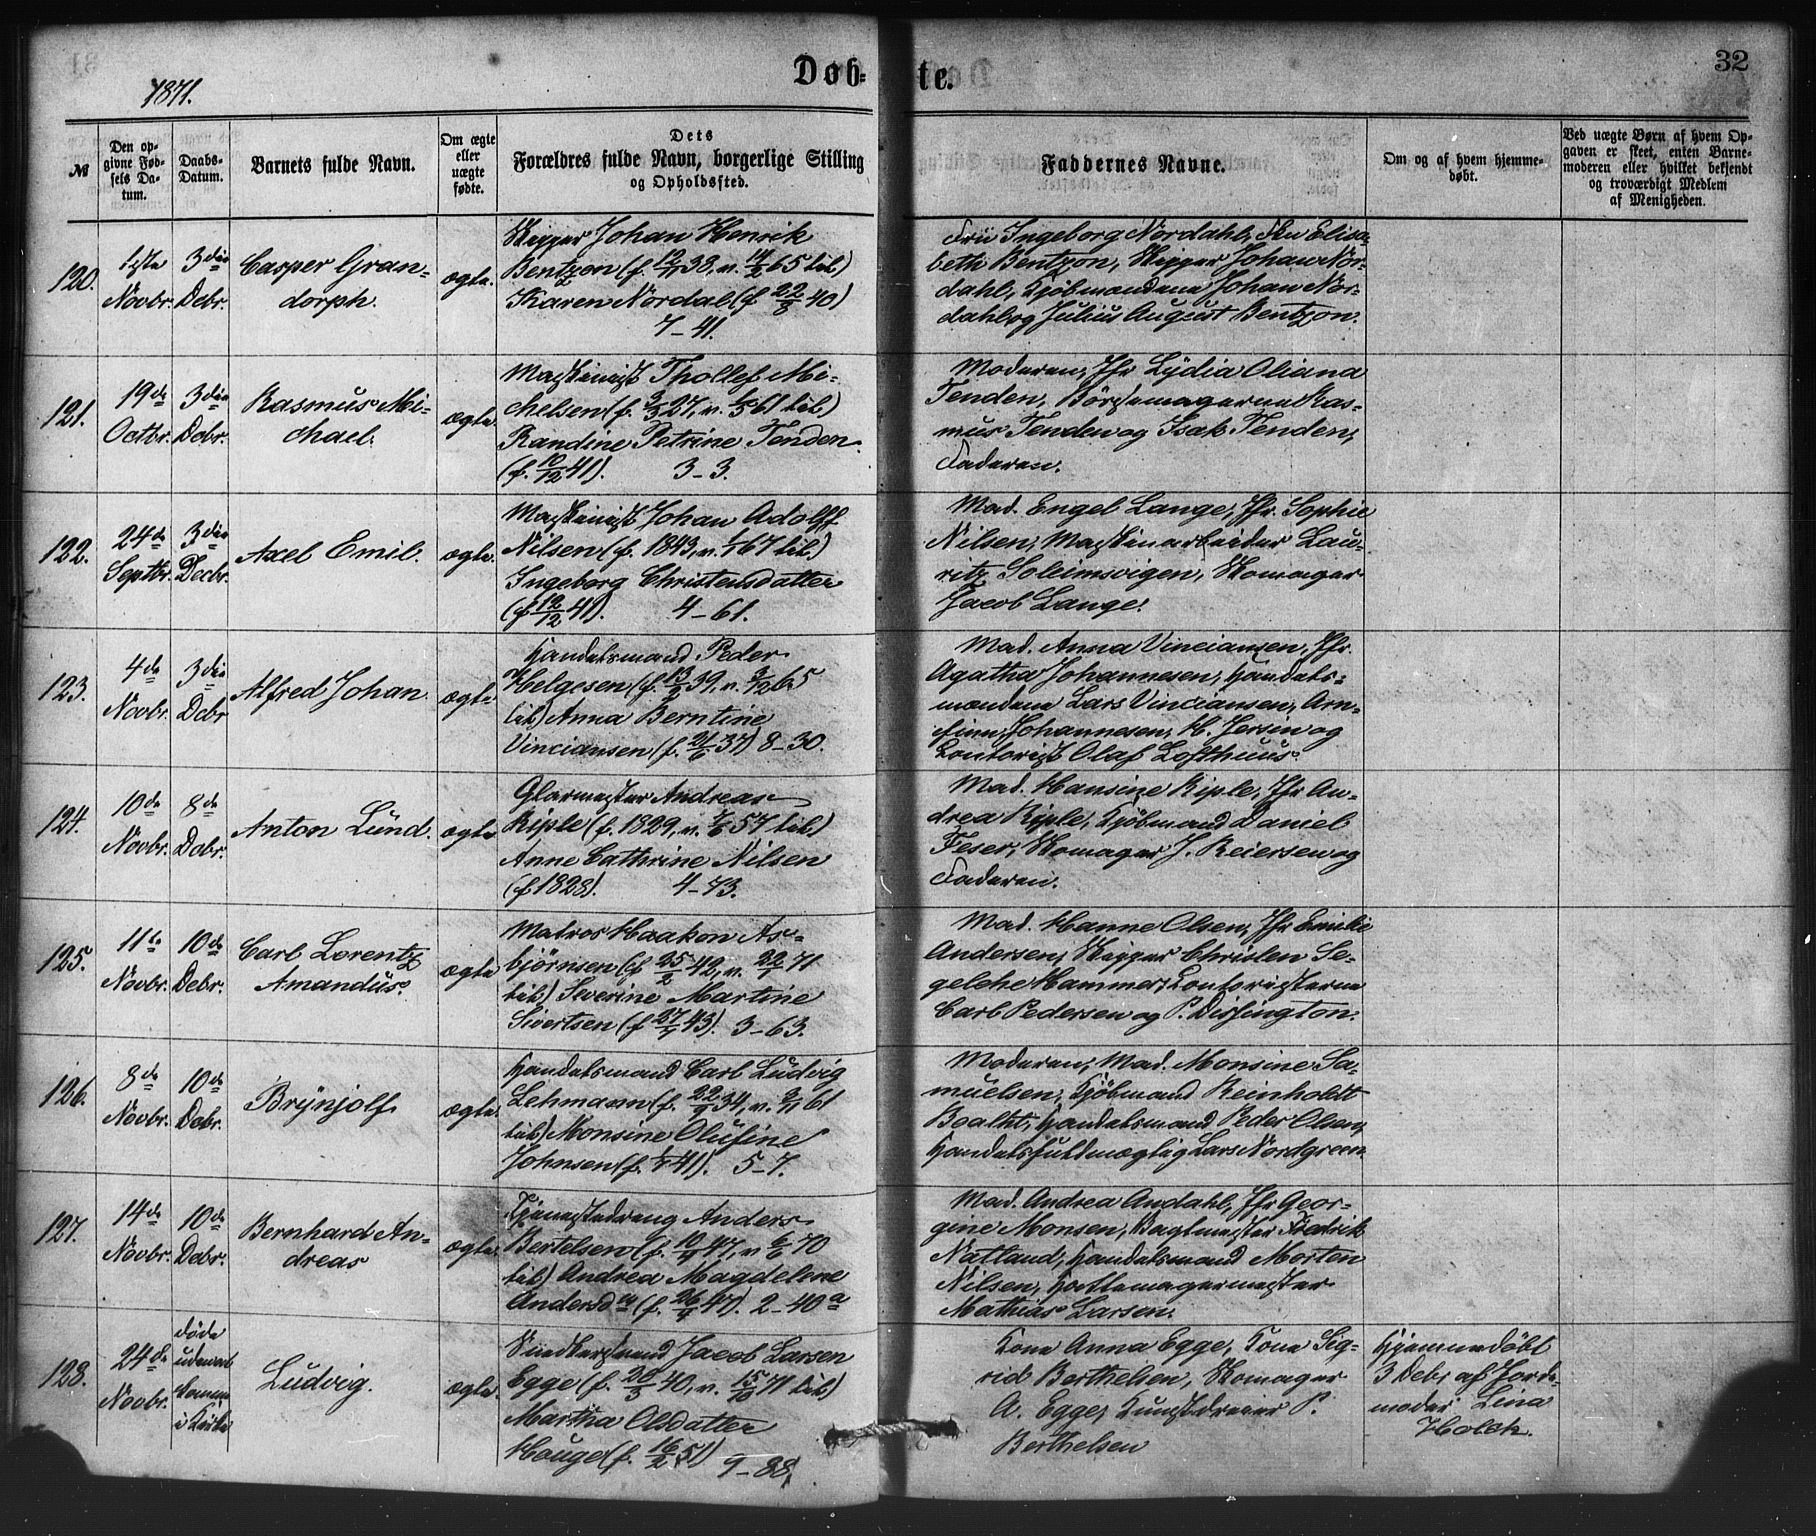 1871.
Døb-
te.
32
№
Den op-
givne Fød-
sels Da-
tum.
Daabs-
Datum.
Barnets fulde Navn.
Om ægte
eller
uægte
fødte.
Dets
Forældres fulde Navn, borgerlige Stilling
og Opholdssted.
Faddernes Navne.
Om og af hvem hjemme-
døbt.
Ved uægte Børn af hvem Op-
gaven er skeet, enten Barne-
moderen eller hvilket bekjendt
og troværdigt Medlem
af Menigheden.
120.
1ste
Novbr.
3die
Debr.
Casper Gran-
dorph.
ægte.
Skipper Johan Henrik
Bentzon (f. 12/7 38, v. 14/2 65 til)
Karen Nordal (f 22/8 40)
7-41.
Fru Ingeborg Nordahl, Fru Elisa-
beth Bentzon, Skipper Johan Nor-
dahl, Kjøbmændene Johan Nor-
dahl og Julius August Bentzon.
121.
19de
Octbr.
3die
Debr.
Rasmus Mi-
chael.
ægte
Maskinist Thollef Mi-
chelsen (f. 9/3 27, v. 1/5 61 til)
Randine Petrine Tenden
(f. 10/12 41). 3-3.
Moderen, Jfr Lydia Oliana
Tenden, Børsemagerne Ras-
mus Tenden og Isak Tenden,
Faderen.
122.
24de
Septbr.
3die
Decbr.
Axel Emil.
ægte.
Maskinist Johan Adolff
Nilsen (f. 1843, v. 1/7 67 til)
Ingeborg Christensdatter
(f 12/12 41). 4-61.
Mad. Engel Lange, Jfr. Sophie
Nilsen, Maskinarbeider Lau-
ritz Soleimsvigen, Skomager
Jacob Lange.
123.
4de
Novbr.
3die
Debr
Alfred Johan.
ægte
Handelsmand Peder
Helgesen (f. 13/2 39, v. 3/12 65
til) Anna Berntine
Vinciansen (f. 21/6 37) 8-30.
Mad. Anna Vinciansen, Jfr.
Agatha Johannesen, Handels-
mændene Lars Vinciansen, Arn-
finn Johannesen, H. Jersin og
Contorist Olaf Lofthuus.
124.
10de
Novbr.
8de
Debr.
Anton Lund.
ægte
Glarmester Andreas
Riple (f. 1829, v. 7/6 57 til)
Anne Cathrine Nilsen
(f 1828). 4-73.
Mad. Hansine Riple, Jfr An-
drea Riple, Kjøbmand Daniel
Feser, Skomager J. Reiersen og
Faderen.
125.
11te
Novbr.
10de
Debr.
Carl Lorentz
Amandus.
ægte
Matros Haakon As-
bjørnsen (f 25/2 42, v. 22/1 71
til) Severine Martine
Sivertsen (f 27/7 43). 3-63.
Mad. Hanne Olsen, Jfr Emilie
Andersen, Skipper Christen Se-
gelche Hammer, Contoristerne
Carl Pedersen og P. Dissington.
126.
8de
Novbr.
10de
Debr.
Brynjolf.
ægte.
Handelsmand Carl Ludvig
Lehmann (f. 22/9 34, v. 3/11 61
til) Monsine Olufine
Johnsen (f. 1/7 41). 5-7.
Moderen, Mad. Monsine Sa-
muelsen, Kjøbmand Reinholdt
Boalth, Handelsmand Peder Olsen,
Handelsfuldmægtig Lars Nordgreen.
127.
14de
Novbr.
10de
Debr.
Bernhard An-
dreas
ægte.
Tjenestedreng Anders
Bertelsen (f. 10/9 47, v 6/6 70
til) Andrea Magdelene
Andersd.tr (f. 26/9 47). 2-40 a
Mad. Andrea Andahl, Jfr Geor-
gine Monsen, Bagtmester Fredrik
Natland, Handelsmand Morten
Nilsen, Hattemagermester
Mathias Larsen.
128.
24de
Novbr.
døde
uden at
komme
i Kirke
Ludvig.
ægte.
Snedkersvend Jacob Larsen
Egge (f. 20/3 40, v. 15/10 71 til)
Martha Olsdatter
Hauge (f. 16/2 51) 9-88.
Kone Anna Egge, Kone Sig-
rid Berthelsen, Skomager
A. Egge, Kunstdreier P.
Berthelsen
Hjemmedøbt
3 Debr af Jorde-
moder Lina
Holck.